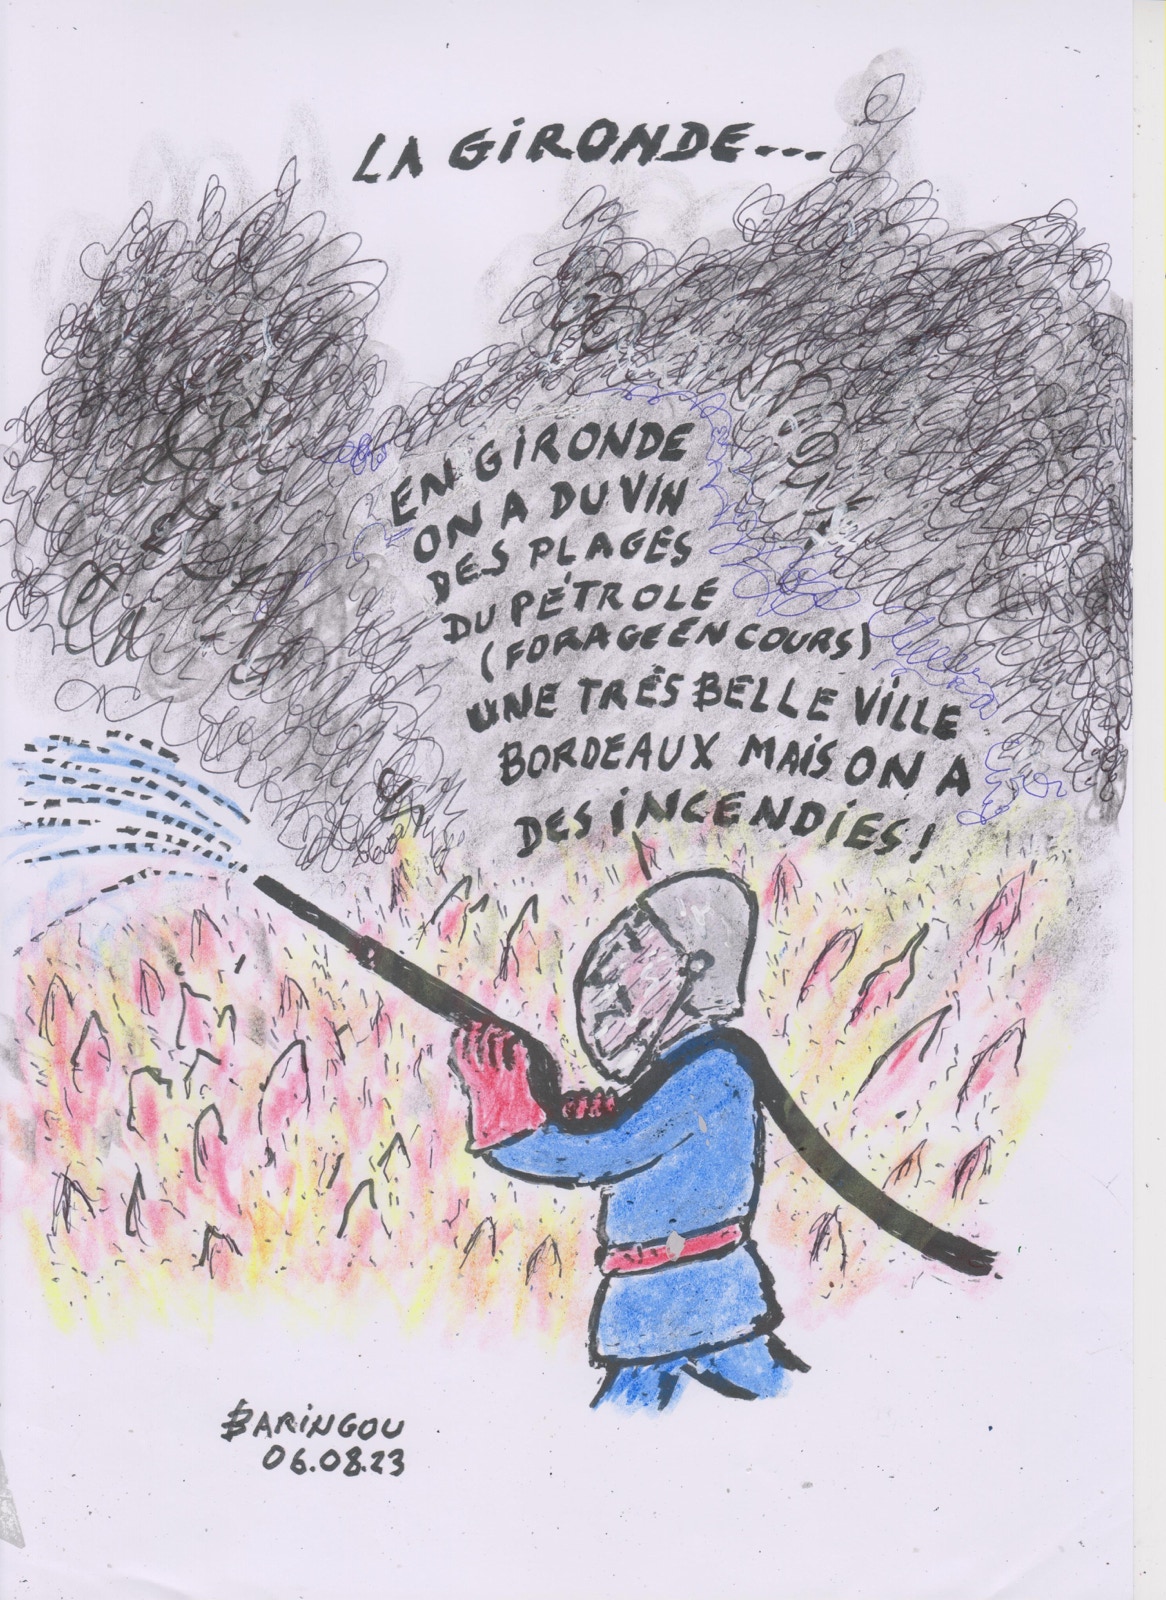 LA GiRONDE...
EN GiRONDE
ON A DU ViN
DES PLAGES
DU PÉTROLE
(FORAGE EN COURS)
UNE TRÈS BELLE VilLE
BORDEAUX MAiS ON A
DES iNCENDiES!
BARiNGOU
06.08.23